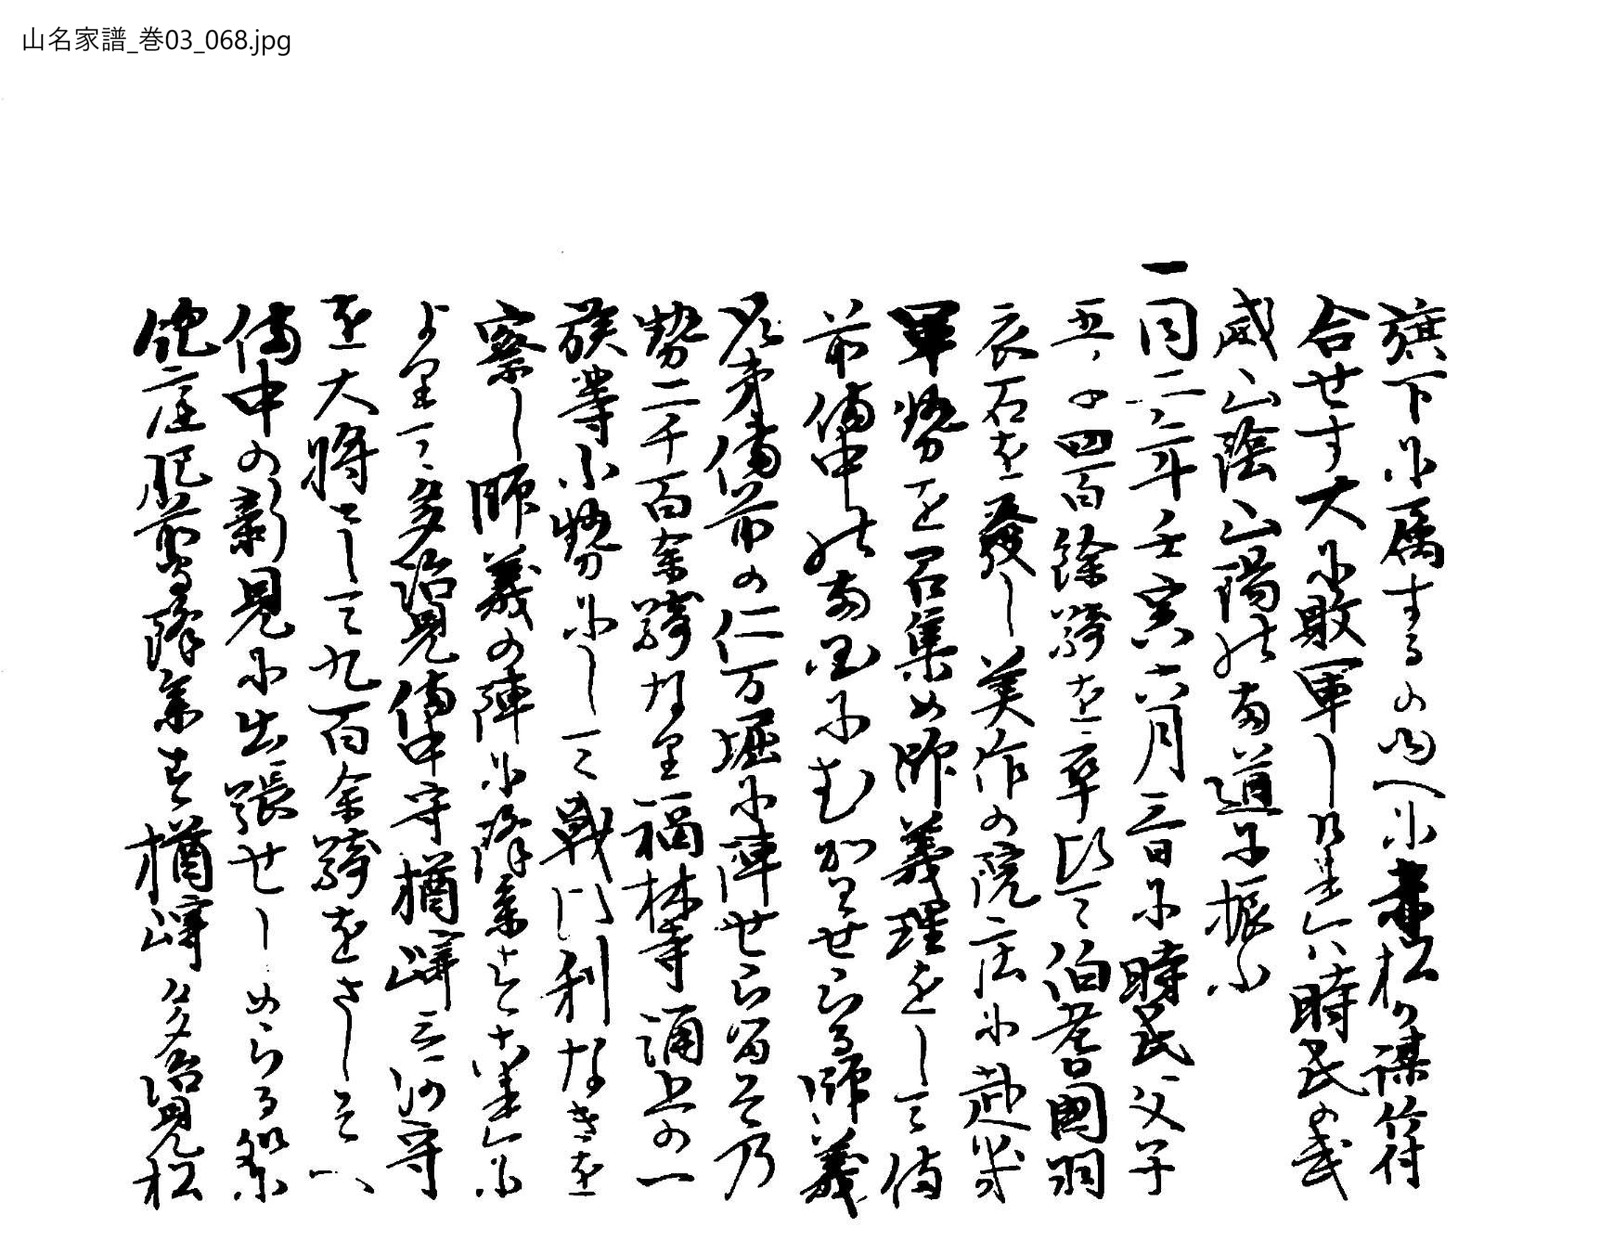 山名家譜_巻03_068.jpg
旗下に属するの間へに赤松か謀符
合せす大に敗軍しけれハ時氏の武
威山陰山陽の両道に振ふ
一同二年壬寅六月三日に時氏父子
五千四百餘騎を率ひて伯耆國羽
衣石を發し美作の院庄に赴
軍勢を召集め師義義理をして備
前備中の両國に むかせらる師義
備前の仁万堀に陣せらる 乃
勢二千百余騎なり福林寺 の一
族等小勢にして戦に利なきを
察し師義の陣に降参す れに
より 多治見備中守楢﨑三河守
を大将として九百余騎をさしそへ
備中の新見に出張せしめらる
庄肥前守降参す楢﨑多治見松